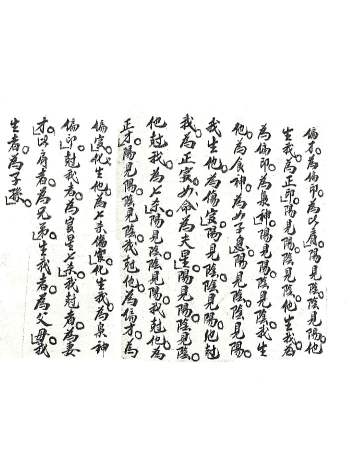 偏才為偏印為比肩陽見陽陰見陽他
生我為正印陽見陰陰見陽他生我為
為偏印為梟神陽見陽陰見陰我生
他為食神為子息陽見陽陰見陰
我生他為傷官陽見陰陰見陽他尅
我為正官女命為夫星陽見陰陰見陽
他尅我為七杀陽見陽陰見陰我尅他為
正才陽見陰陰見陽我尅他為偏才為
偏官化生他為七杀傷官化生我為梟神
偏印尅我者為官星七杀我尅者為妻
才比肩者為兄弟生我者為父母我
生者為子孫